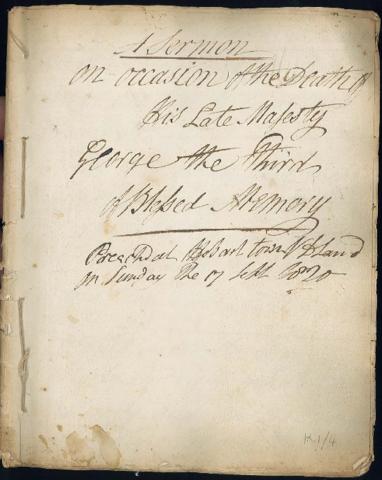 A Sermon
on occasion of the Death of
His Late Majesty
George the Third
of Blessed Memory
Preachd at Hobart town V D Land
on Sunday the 17 Sept
K.1/4